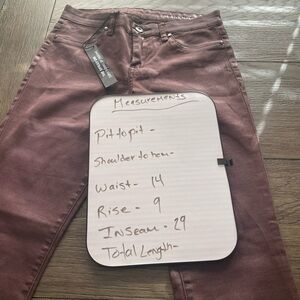 Measurements
Pit to pit -
Shoulder to hem -
Waist - 14
Rise - 9
InSeam - 29
Total Length -